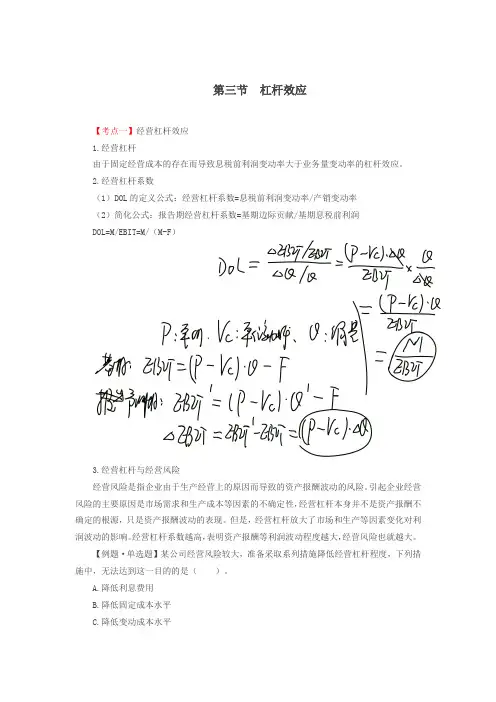 第三节 杠杆效应
【考点一】经营杠杆效应
1.经营杠杆
由于固定经营成本的存在而导致息税前利润变动率大于业务量变动率的杠杆效应。
2.经营杠杆系数
（1）DOL的定义公式：经营杠杆系数=息税前利润变动率/产销变动率
（2）简化公式：报告期经营杠杆系数=基期边际贡献/基期息税前利润
DOL=M/EBIT=M/（M-F）
DOL = △EBIT/EBIT / △Q/Q = (P-Vc)·△Q / EBIT × Q / △Q
= (P-Vc)·Q / EBIT
= M / EBIT
P:单价. Vc:单位变动成本、Q:销量
基期: EBIT=(P-Vc)·Q-F
EBIT'=(P-Vc)·Q'-F
△EBIT=EBIT'-EBIT=(P-Vc)·△Q
3.经营杠杆与经营风险
经营风险是指企业由于生产经营上的原因而导致的资产报酬波动的风险。引起企业经营
风险的主要原因是市场需求和生产成本等因素的不确定性，经营杠杆本身并不是资产报酬不
确定的根源，只是资产报酬波动的表现。但是，经营杠杆放大了市场和生产等因素变化对利
润波动的影响。经营杠杆系数越高，表明资产报酬等利润波动程度越大，经营风险也就越大。
【例题·单选题】某公司经营风险较大，准备采取系列措施降低经营杠杆程度，下列措
施中，无法达到这一目的的是（ ）。
A.降低利息费用
B.降低固定成本水平
C.降低变动成本水平